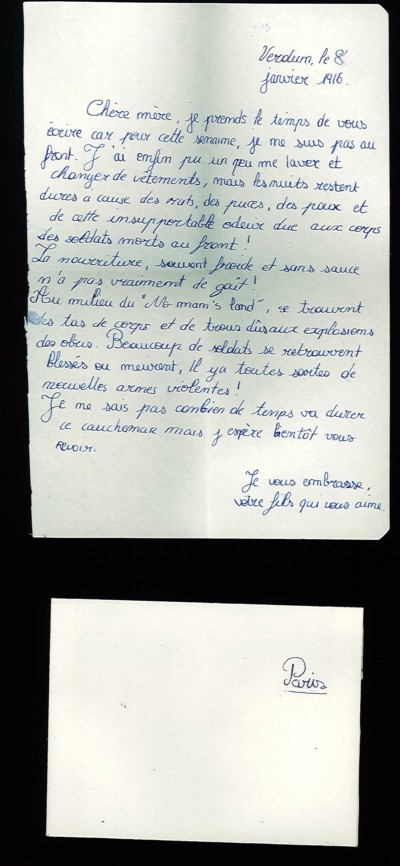 Verdun, le 8
janvier 1916.
Chère mère, je prends le temps de vous
écrire car pour cette semaine, je ne suis pas au
front. J'ai enfin pu un peu me laver et
changer de vêtements, mais les nuits restent
dures a cause des rats, des puces, des poux et
de cette insupportable odeur due aux corps
des soldats morts au front !
La nourriture, souvent froide et sans sauce
n'a pas vraiment de goût !
Au milieu du "No man's land", se trouvent
des tas de corps et de trous dûs aux explosions
des obus. Beaucoup de soldats se retrouvent
blessés ou meurent, Il y a toutes sortes de
nouvelles armes violentes !
Je ne sais pas combien de temps va durer
ce cauchemar mais j'espère bientôt vous
revoir.
Je vous embrasse,
votre fils qui vous aime.
Paris